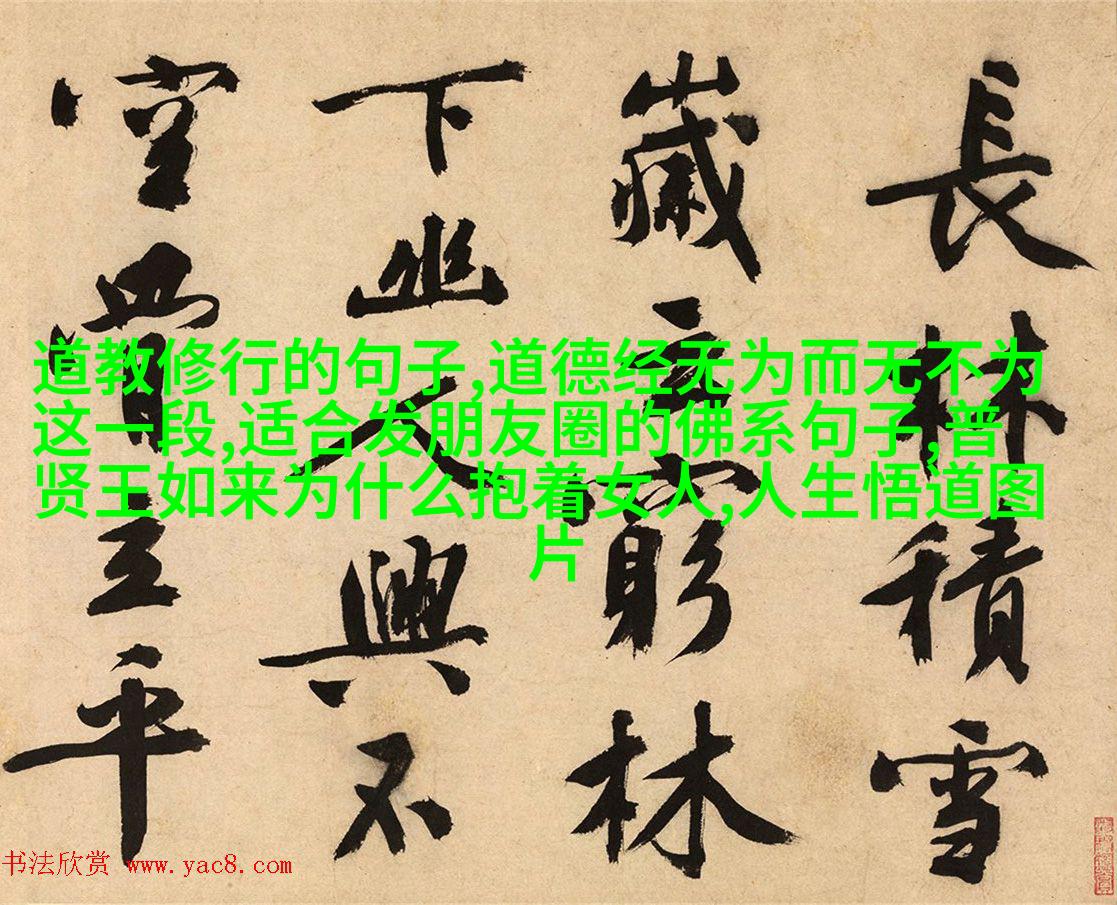 長林積雪
歲云窮林
下幽人興不
空平
道教修行的句子,道德经无为而无不为
这一段,适合发朋友圈的佛系句子,普
贤王如来为什么抱着女人,人生悟道图
片
书法欣赏 www.yac8.com